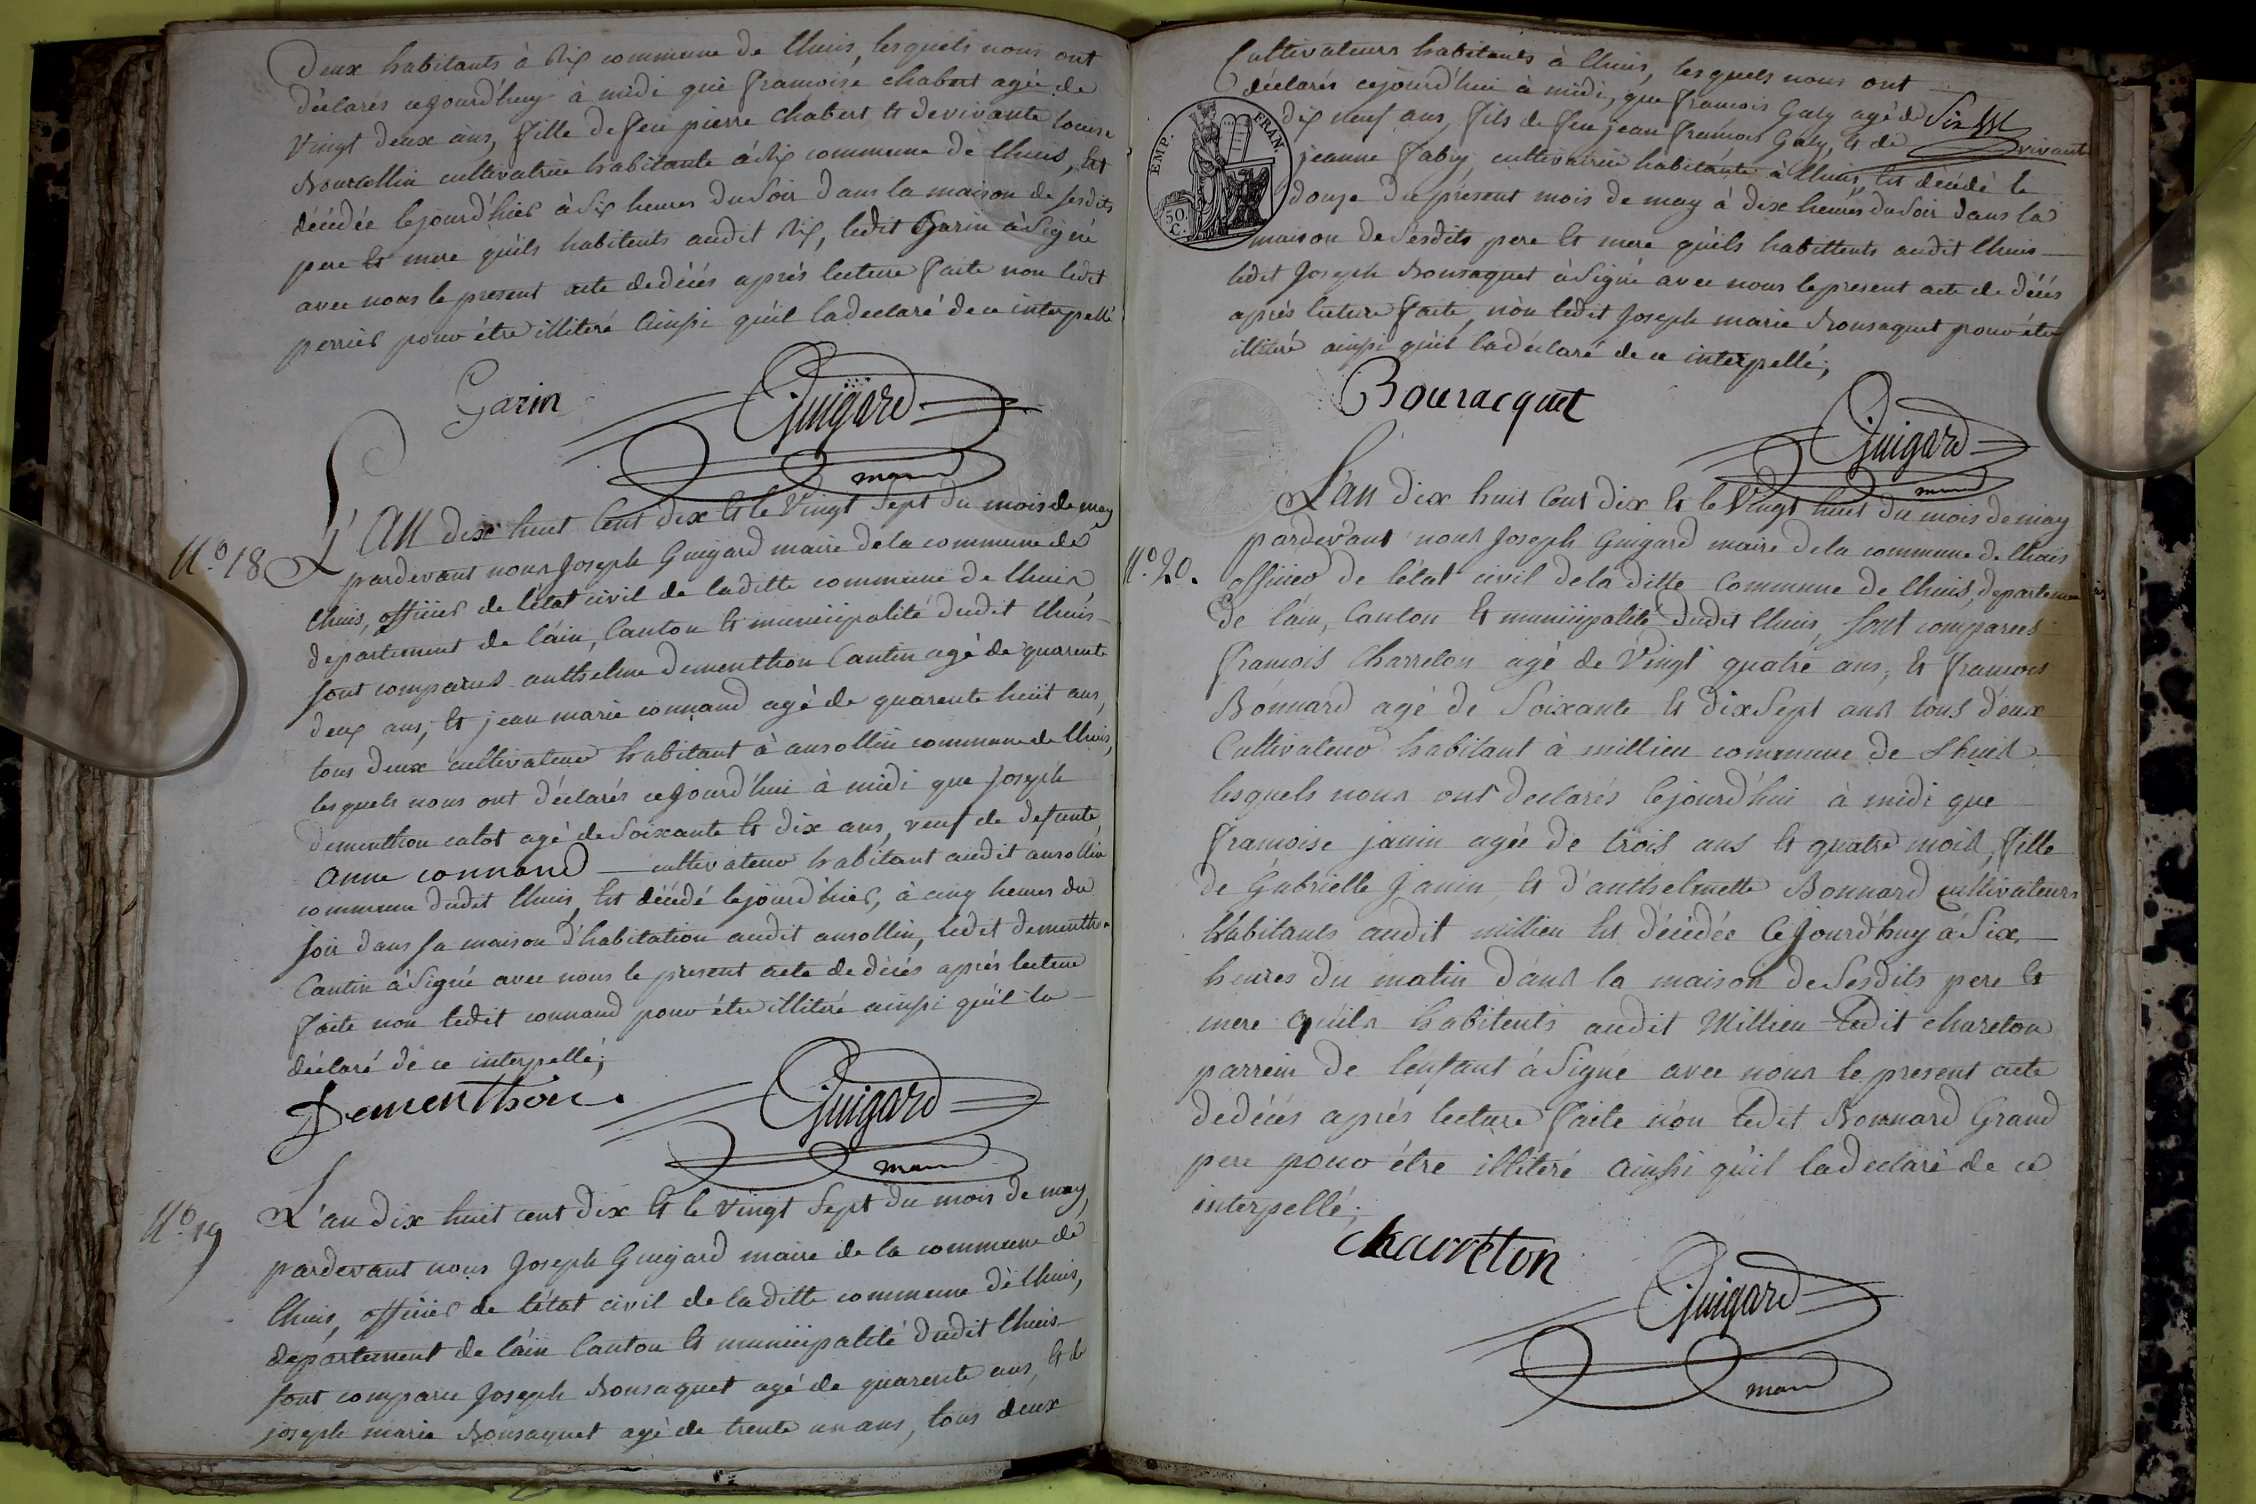 Deux habitants à Rix commune de lhuis, lesquels nous ont
déclarés cejourd'huy à midi que francoise chabert agée de
Vingt deux ans, fille de feu pierre chabert et de vivante louise
cultivatrice habitante à Rix commune de lhuis, est
décédée lejourd'hier à Six heures du Soir dans la maison de sesdits
pere et mere qu'ils habitents audit Rix, ledit Garin à Signé
avec nous le present acte de décés aprés lecture faite non ledit
perrier pour étre illiteré ainsi qu'il la declaré de ce interpellé
Garin
Guigard
maire
N.o 18
L'an dix huit cent dix et le Vingt Sept du mois de may
pardevant nous Joseph Guigard maire de la commune de
lhuis, officier de l'état civil de laditte commune de lhuis,
departement de l'áin, Canton et municipalité dudit lhuis
sont comparus anthelme dementhon Cantin agé de quarente
deux ans, et jean marie connand agé de quarente huit ans,
tous deux cultivateur habitant à ansollin commune de lhuis,
lesquels nous ont déclarés cejourd'hui à midi que Joseph
dementhon calot agé de Soixante et dix ans, veuf de defunte
anne connand cultivateur habitant audit ansollin
commune dudit lhuis, est décédé lejourd'hier, à cinq heures du
soir dans sa maison d'habitation audit ansollin, ledit dementhon
Cantin à Signé avec nous le present acte de décés aprés lecture
faite non ledit connand pour étre illiteré ainsi qu'il la
déclaré de ce interpellé;
Dementhon.
Guigard
maire
N.o 19
L'an dix huit cent dix et le vingt Sept du mois de may,
pardevant nous Joseph Guigard maire de la commune de
lhuis, officier de l'état civil de laditte commune de lhuis,
departement de l'áin Canton et municipalité dudit lhuis
sont comparu Joseph Bouraquet agé de quarente ans, et de
joseph marie Bouraquet agé de trente un ans, tous deux
Cultivateurs habitants à lhuis, lesquels nous ont
déclarés cejourd'hui à midi, que francois Galy agé de Six
dix neuf ans, fils de feu jean francois Galy, et de vivante
jeanne fabry cultivatrice habitante à lhuis, est décédé le
douze du présent mois de may à dix heures du Soir dans la
maison de Sesdits pere et mere qu'ils habittents audit lhuis
ledit Joseph Bouraquet à Signé avec nous le present acte de décés
aprés lecture faite, nòn ledit Joseph marie Bouraquet pour étre
illiteré ainsi qu'il la déclaré de ce interpellé;
EMP. FRAN.
50.
C.
Bouracquet
Guigard
maire
N.o 20.
L'an dix huit Cent dix et le Vingt huit du mois de may
pardevant nous Joseph Guigard maire de la commune de lhuis
officier de l'état civil de la ditte Commune de lhuis, departement
de l'áin, Canton et municipalité dudit lhuis, sont comparus
francois Charreton agé de Vingt quatre ans, et francois
Bonnard agé de Soixante et dix Sept ans tous deux
Cultivateur habitant à millieu commune de Lhuis
lesquels nous ont declarés lejourd'hui à midi que
francoise janin agée de trois ans et quatre mois, fille
de Gabrielle Janin, et d'anthelmette Bonnard cultivateurs
habitants audit millieu est décédée cejourd'huy à Six
heures du matin dans la maison de Sesdits pere et
mere qu'ils habitents audit Millieu ledit chareton
parrein de l'enfant à Signé avec nous le present acte
de décés aprés lecture faite nón ledit Bonnard Grand
pere pour étre illiteré ainsi qu'il la declaré de ce
interpellé;
charreton
Guigard
maire